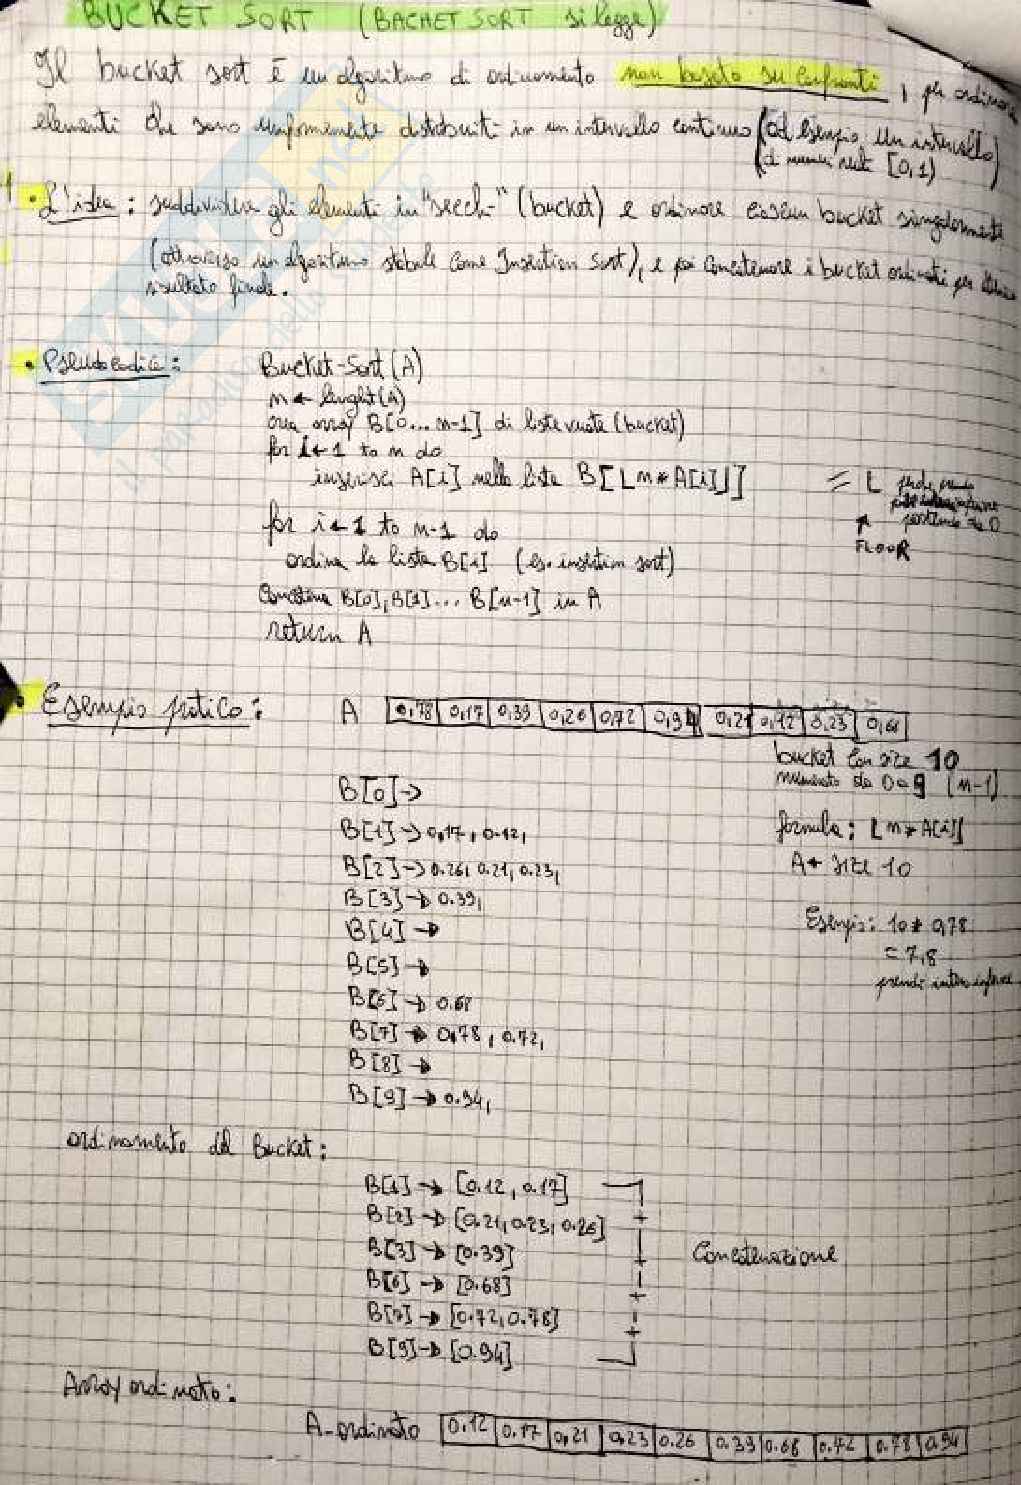 BUCKET SORT (BACHET SORT si legge)
Il bucket sort è un algoritmo di ordinamento non basato su confronti, per ordinare
elementi che sono uniformemente distribuiti in un intervallo continuo (ad esempio un intervallo
di numeri reali [0,1)
• L'idea: suddividere gli elementi in "secchi" (bucket) e ordinare ciascun bucket singolarmente
(attraverso un algoritmo stabile come Insertion Sort), e poi concatenare i bucket ordinati per
risultato finale.
• Pseudocodice:
Bucket-Sort(A)
n ← lenght(A)
crea array B[0...n-1] di liste vuote (bucket)
for i←1 to n do
inserisci A[i] nella lista B[⌊n*A[i]⌋]
= ⌊
partendo da 0
FLOOR
for i←1 to n-1 do
ordina la lista B[i] (es. insertion sort)
Concatena B[0], B[1]... B[n-1] in A
return A
• Esempio pratico:
A 0,78 0,17 0,39 0,26 0,72 0,94 0,21 0,12 0,23 0,68
bucket con size 10
numerato da 0 a 9 (n-1)
formula: ⌊n*A[i]⌋
A ← size 10
Esempio: 10*0,78
= 7,8
prendi intero inferiore
B[0]→
B[1]→0,17, 0.12,
B[2]→0.26, 0.21, 0.23,
B[3]→0.39,
B[4]→
B[5]→
B[6]→0.68
B[7]→0,78, 0.72,
B[8]→
B[9]→0.94,
ordinamento del Bucket:
B[1]→[0.12, 0.17]
B[2]→[0.21, 0.23, 0.26]
B[3]→[0.39]
B[6]→[0.68]
B[7]→[0.72, 0.78]
B[9]→[0.94]
Concatenazione
Array ordinato:
A-ordinato 0.12 0.17 0,21 0,23 0.26 0.39 0.68 0.72 0.78 0.94